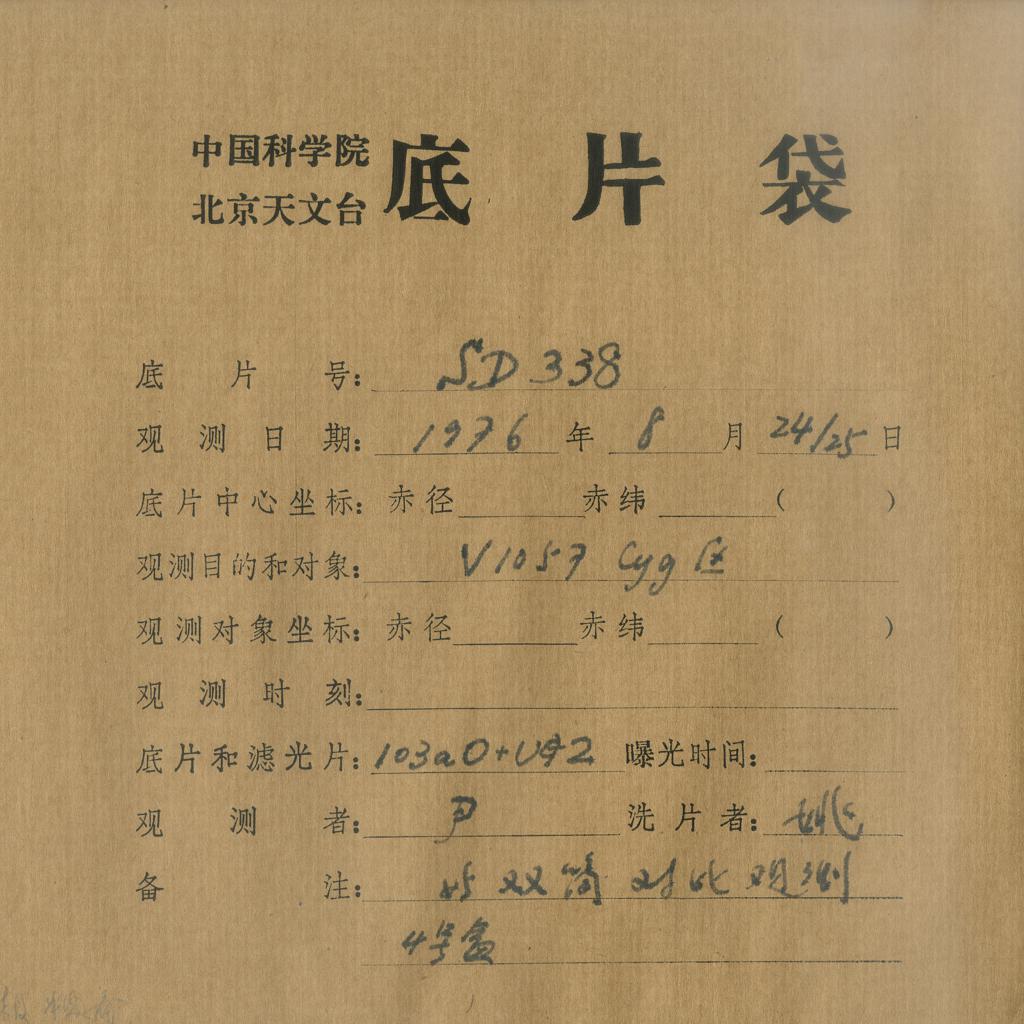 中国科学院
北京天文台
底片袋
底片号：SD 338
观测日期：1976年8月24/25日
底片中心坐标：赤径 赤纬 （ ）
观测目的和对象：V1057 Cyg 区
观测对象坐标：赤径 赤纬 （ ）
观测时刻：
底片和滤光片：103aO+ 曝光时间：
观测者：尹 洗片者：姚
备注：与双筒对比观测
4号盒